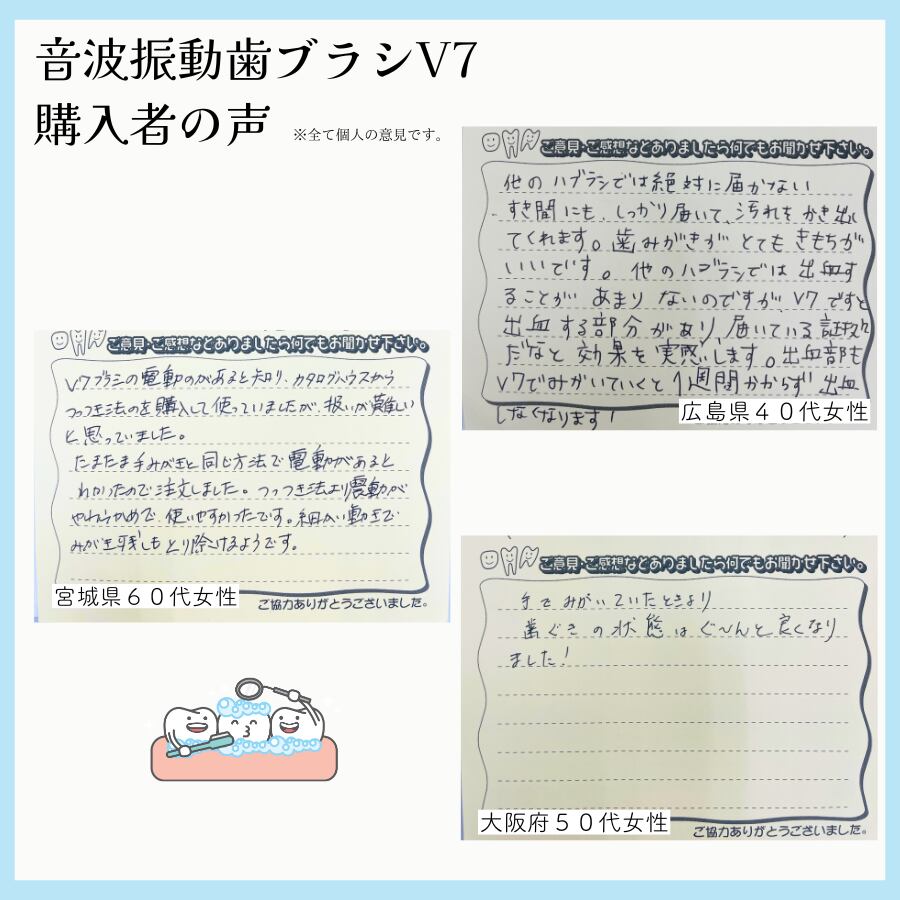 音波振動歯ブラシV7
購入者の声 ※全て個人の意見です。
ご意見・ご感想などありましたら何でもお聞かせ下さい。
他のハブラシでは絶対に届かない
すき間にも、しっかり届いて、汚れをかき出し
てくれます。歯みがきがとてもきもちが
いいです。他のハブラシでは出血す
ることがあまりないのですがV7ですと
出血する部分があり、届いている証拠
だなと効果を実感します。出血部も
V7でみがいていくと1週間かからず出血
しなくなります!
広島県40代女性
ご意見・ご感想などありましたら何でもお聞かせ下さい。
V7ブラシの電動のがあると知り、カタログハウスから
つっつき法のを購入して使っていましたが、扱いが難しい
と思っていました。
たまたま手みがきと同じ方法で電動があると
わかったので注文しました。つっつき法より震動が
やわらかめで、使いやすかったです。細かい動きで
みがき残しもとり除けるようです。
宮城県60代女性
ご協力ありがとうございました。
ご意見・ご感想などありましたら何でもお聞かせ下さい。
手でみがいていたときより
歯ぐきの状態はぐ〜んと良くなり
ました!
大阪府50代女性
ご協力ありがとうございました。